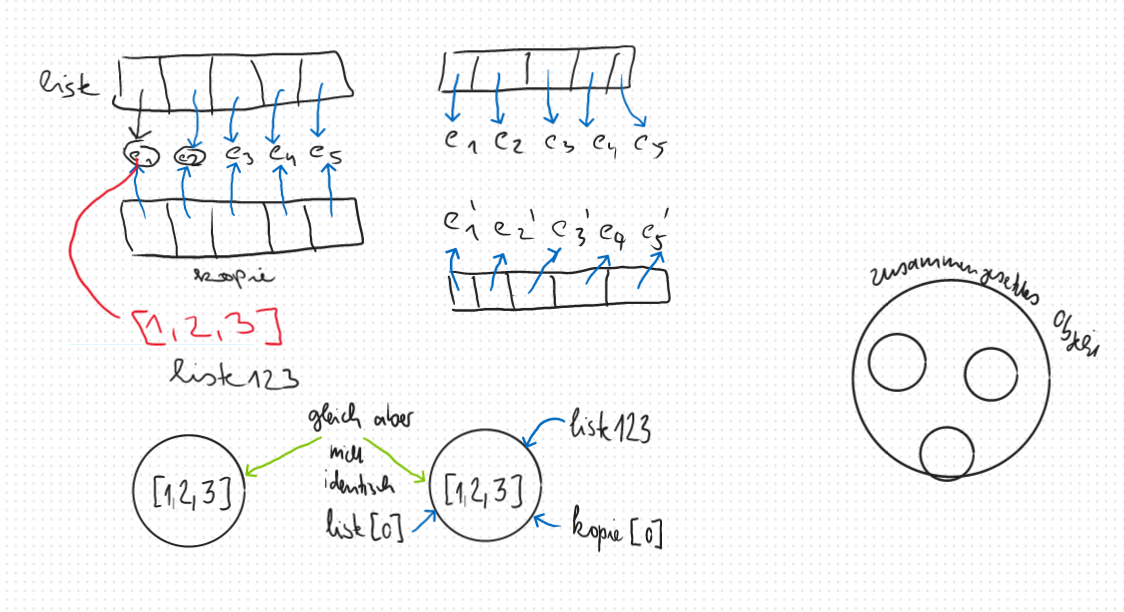 liste
e1 e2 e3 e4 e5
kopie
[1,2,3]
liste123
e1 e2 e3 e4 e5
e1' e2' e3' e4 e5'
zusammengesetztes
Objekt
gleich aber
nicht
identisch
[1,2,3]
[1,2,3]
liste123
liste[0]
kopie[0]